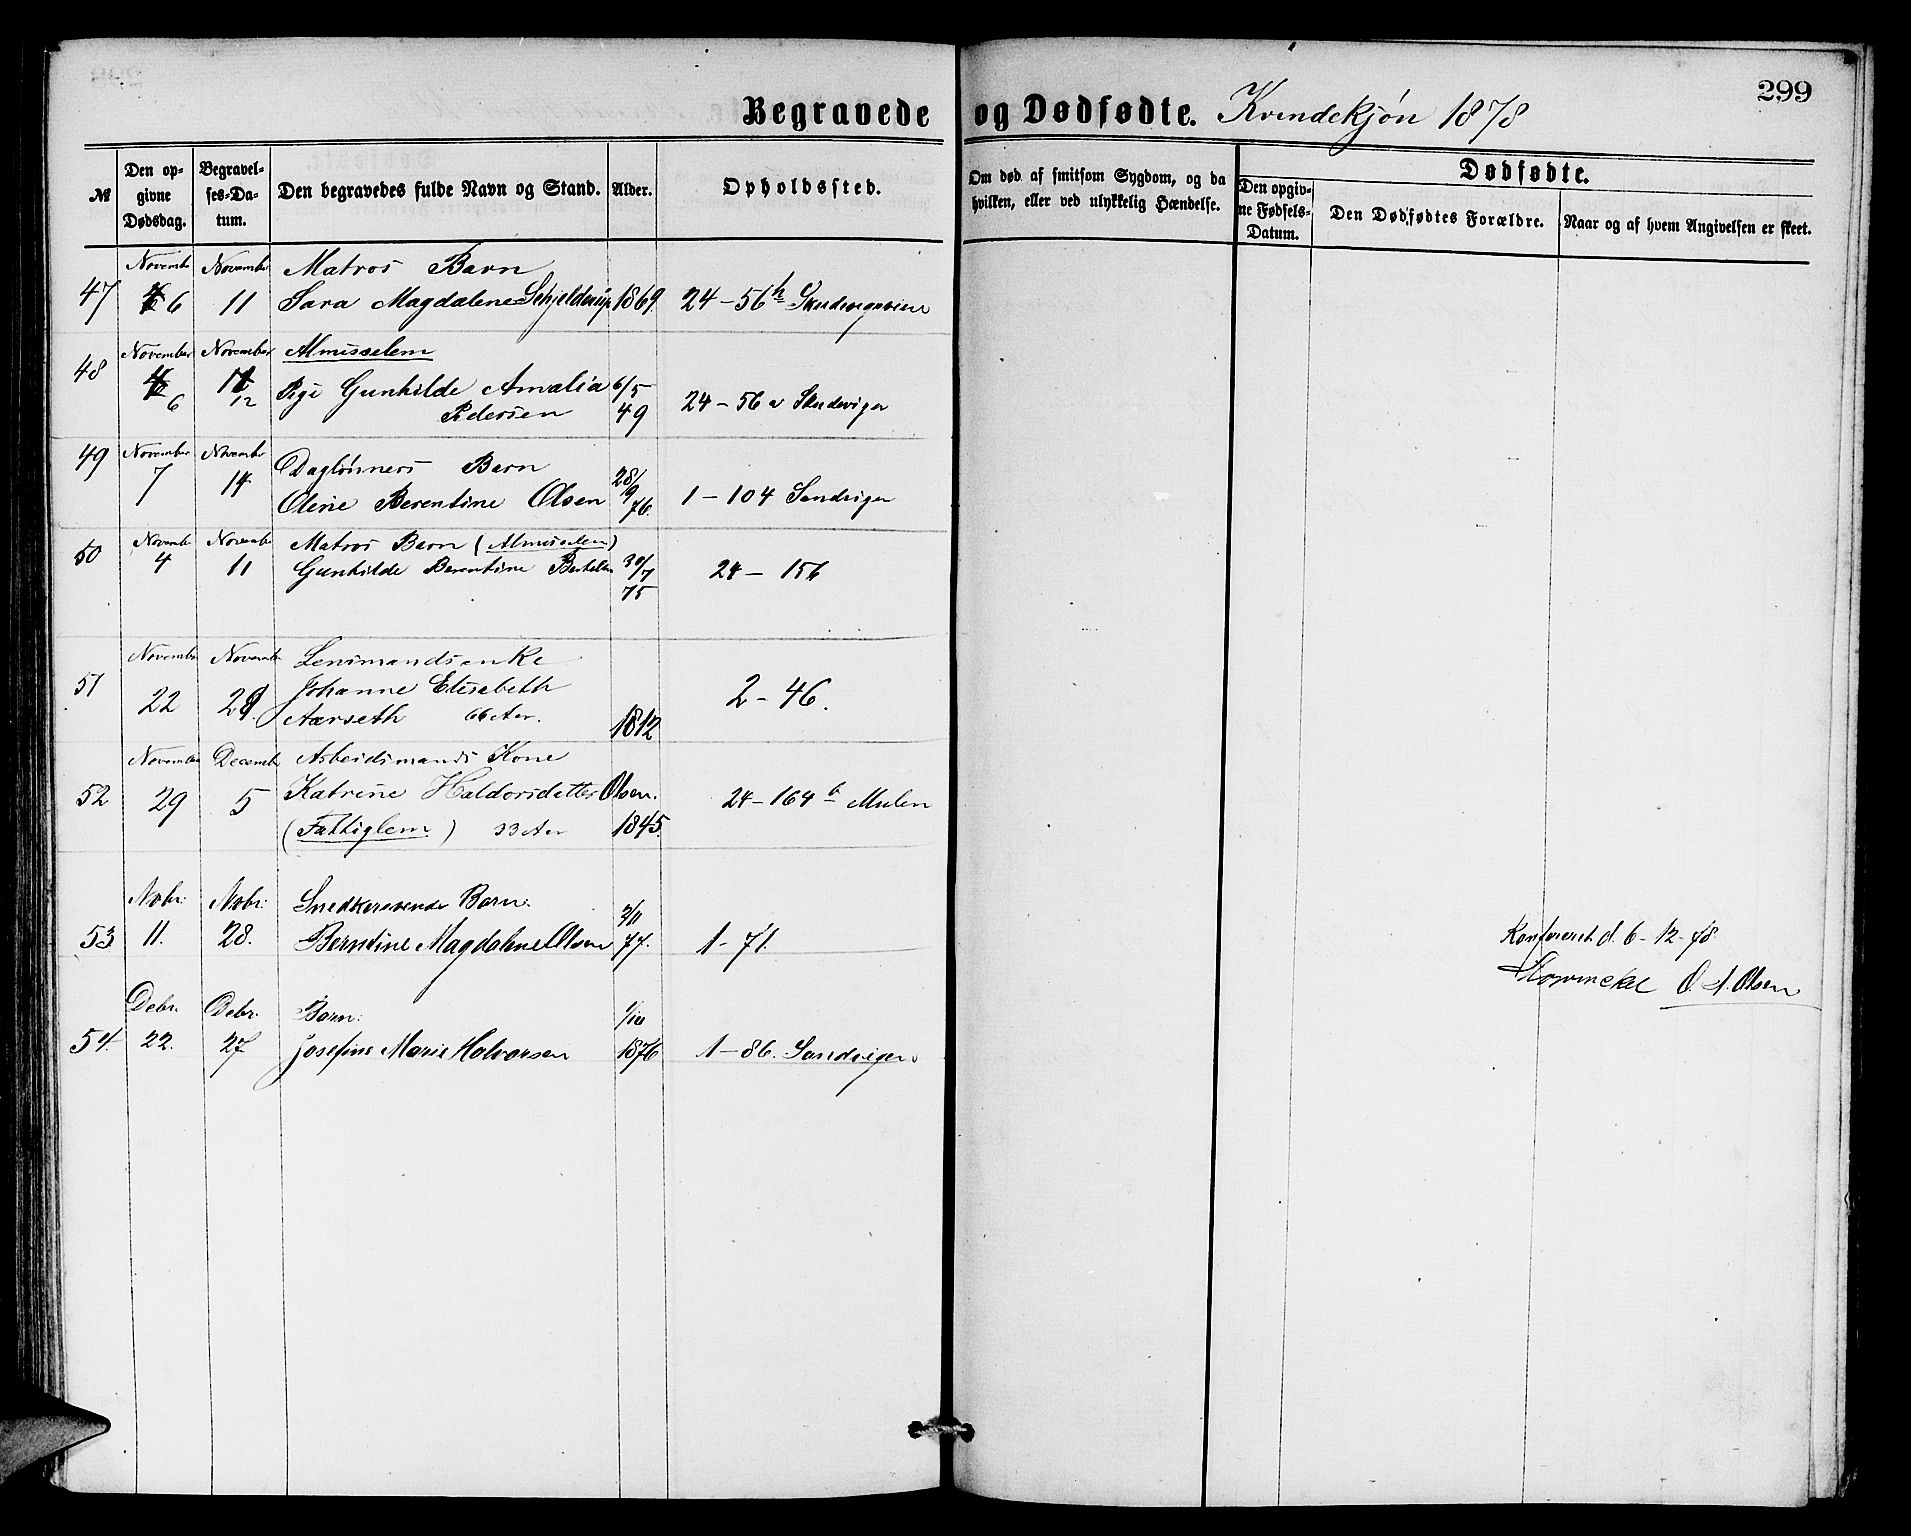 Begravede og Dødfødte. Kvindekjøn 1878
299
№
Den opgivne Dødsdag.
Begravelses-Datum.
Den begravedes fulde Navn og Stand.
Alder.
Opholdssted.
Om død af smitsom Sygdom, og da hvilken, eller ved ulykkelig Hændelse.
Dødfødte.
Den opgivne Fødsels-Datum.
Den Dødfødtes Forældre.
Naar og af hvem Angivelsen er skeet.
Novembr Novembr Matros Barn
47 6 11 Sara Magdalene Schjelderup 1869. 24 – 56 h
November November Almisselem
48 6 12 Pige Gunhilde Amalia 6/5
Pedersen 49 24 – 56 a Skudevigen
49 November Novembr Daglønners Barn 28/9
7 14 Oline Berentine Olsen 76. 1 – 104 Sandvigen
50 Novembr Novembr Matros Barn (Almisselem)
4 11 Gunhilde Berentine 30/7 24 – 156
75
Novembr Novembr Lensmandsenke
51 22 28 Johanne Elisabeth 2 – 46.
Aarseth 66 Aar. 1812
November Decembr Arbeidsmands Kone
52 29 5 Katrine Haldorsdatter Olsen. 24 – 164 b Mulen
(Fattiglem) 33 Aar 1845.
Novbr: Novbr: Snedkersvends Barn: 2/11
53 11. 28. Berntine Magdalene Olsen 77. 1 – 71.
Konfereret d. 6 – 12 – 78.
O. A. Olsen
Debr. Debr. Barn: 1/10
54. 22. 27 Josefine Marie Halvorsen 1876 1 – 86. Sandvigen.